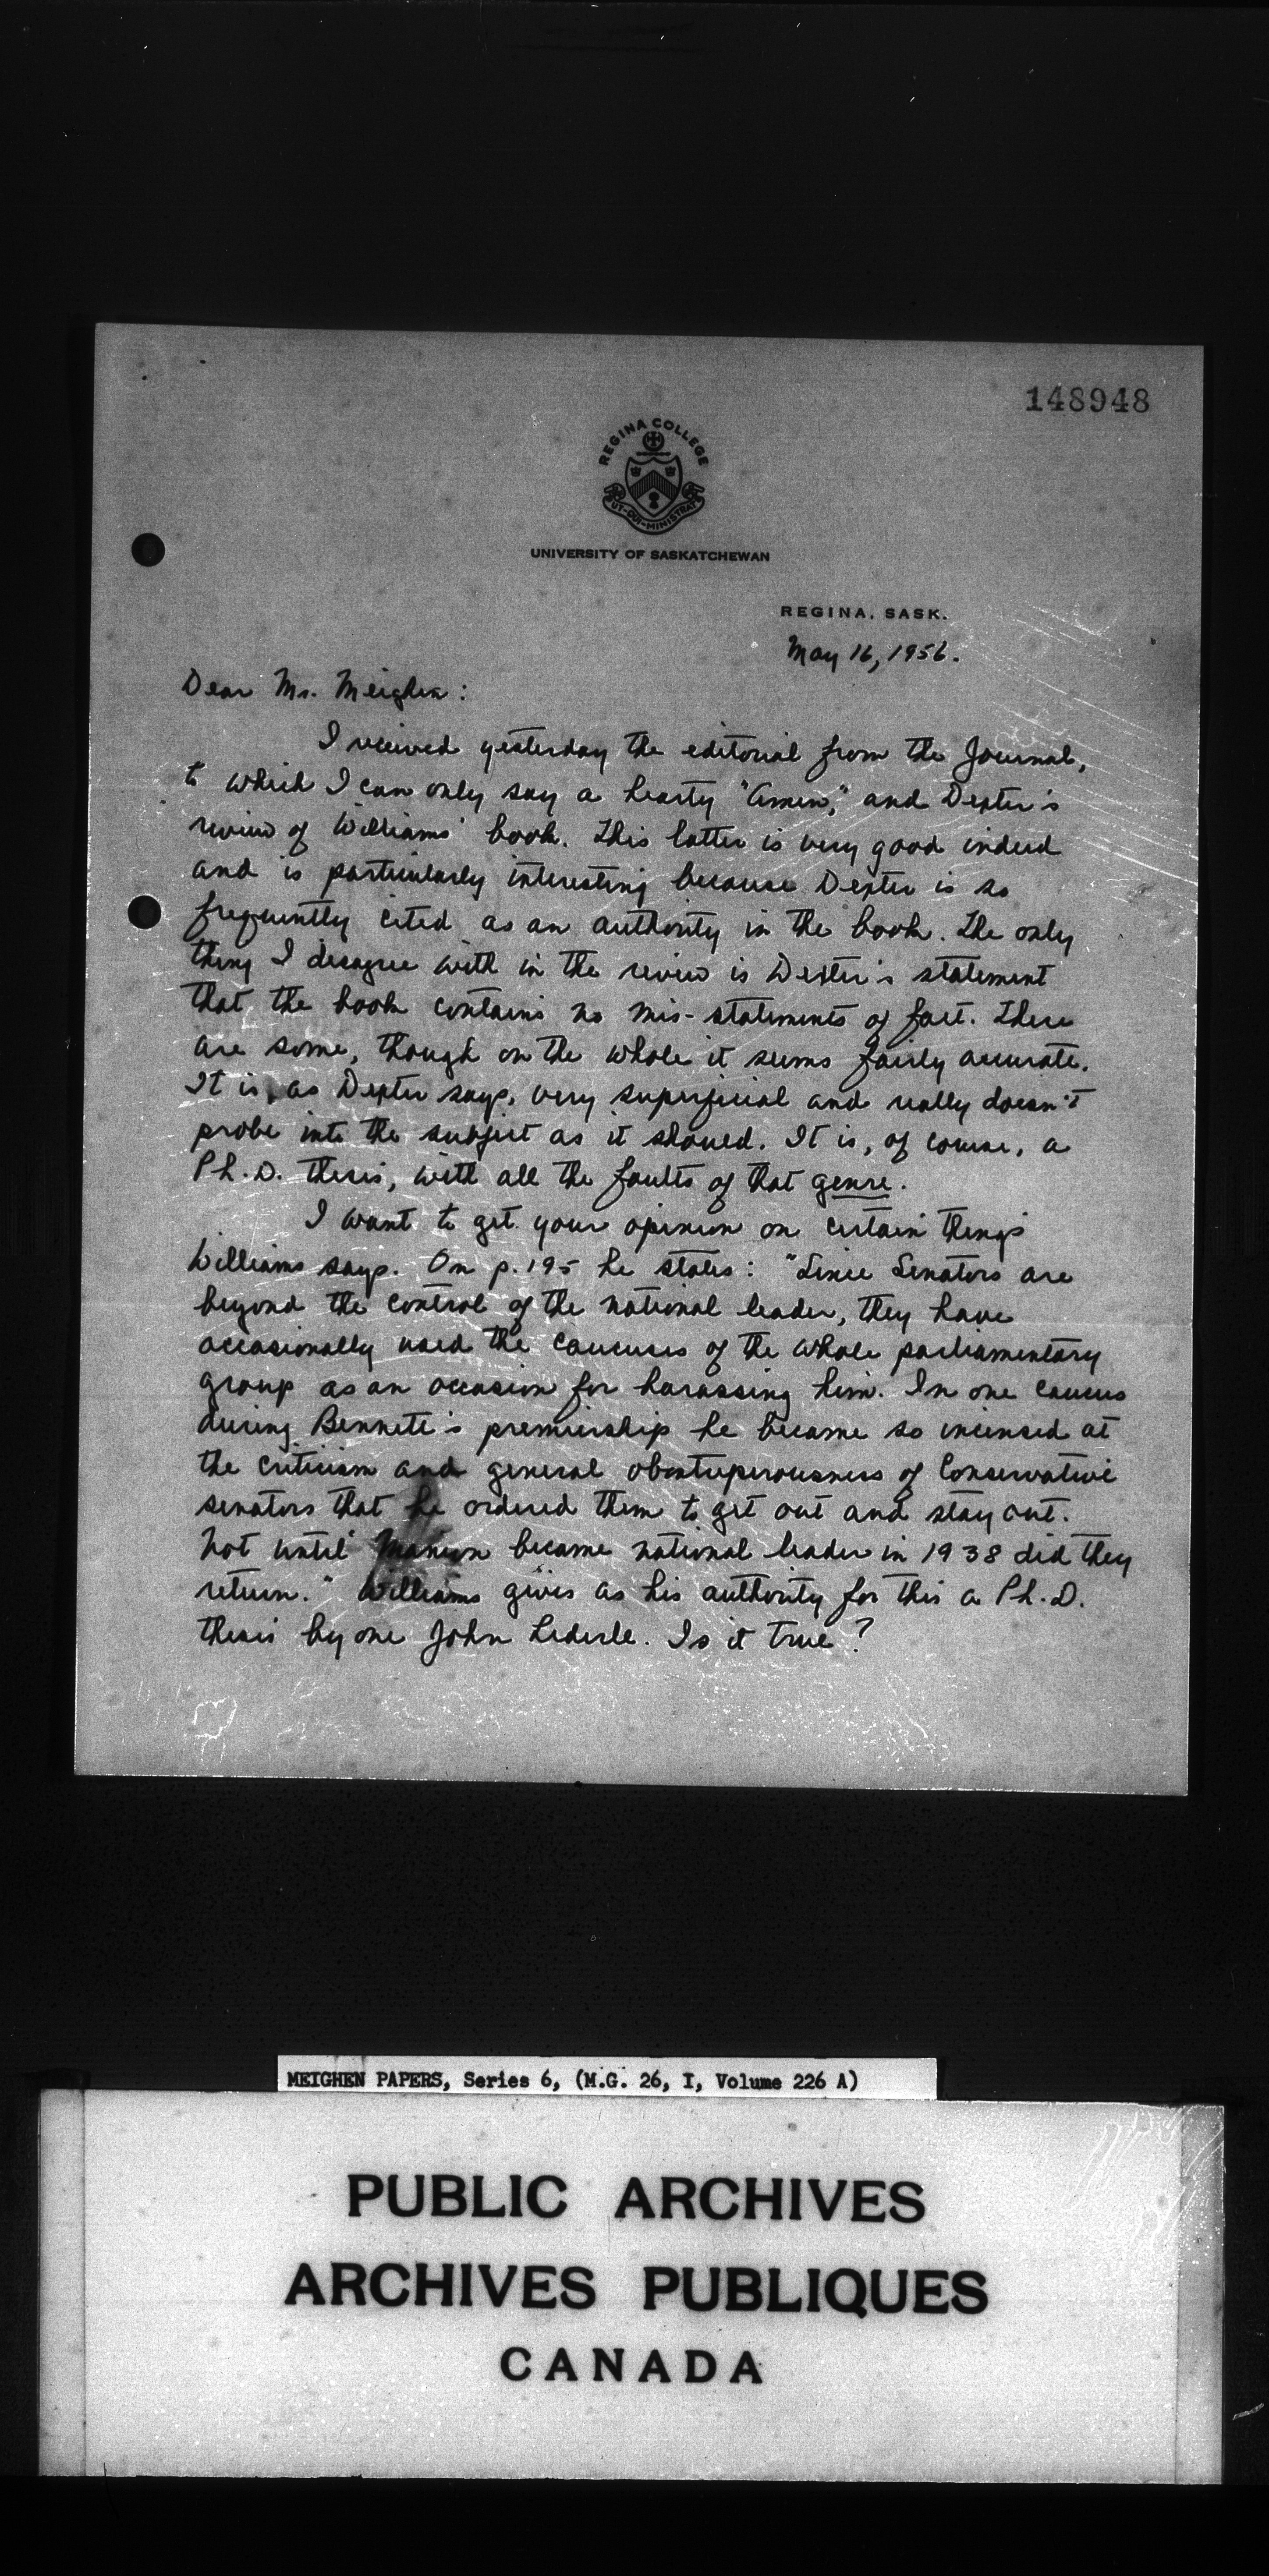 148948
REGINA COLLEGE
UT·QUI·MINISTRAT
UNIVERSITY OF SASKATCHEWAN
REGINA, SASK.
May 16, 1956.
Dear Mr. Meighen:
I received yesterday the editorial from the Journal,
to which I can only say a hearty "Amen," and Dexter's
review of Williams' book. This latter is very good indeed
and is particularly interesting because Dexter is so
frequently cited as an authority in the book. The only
thing I disagree with in the review is Dexter's statement
that the book contains no mis-statements of fact. There
are some, though on the whole it seems fairly accurate.
It is, as Dexter says, very superficial and really doesn't
probe into the subject as it should. It is, of course, a
Ph.D. thesis, with all the faults of that genre.
I want to get your opinion on certain things
Williams says. On p. 195 he states: "Since Senators are
beyond the control of the national leader, they have
occasionally used the caucuses of the whole parliamentary
group as an occasion for harassing him. In one caucus
during Bennett's premiership he became so incensed at
the criticism and general obstreperousness of Conservative
senators that he ordered them to get out and stay out.
Not until Manion became national leader in 1938 did they
return." Williams gives as his authority for this a Ph.D.
thesis by one John Lederle. Is it true?
MEIGHEN PAPERS, Series 6, (M.G. 26, I, Volume 226 A)
PUBLIC ARCHIVES
ARCHIVES PUBLIQUES
CANADA